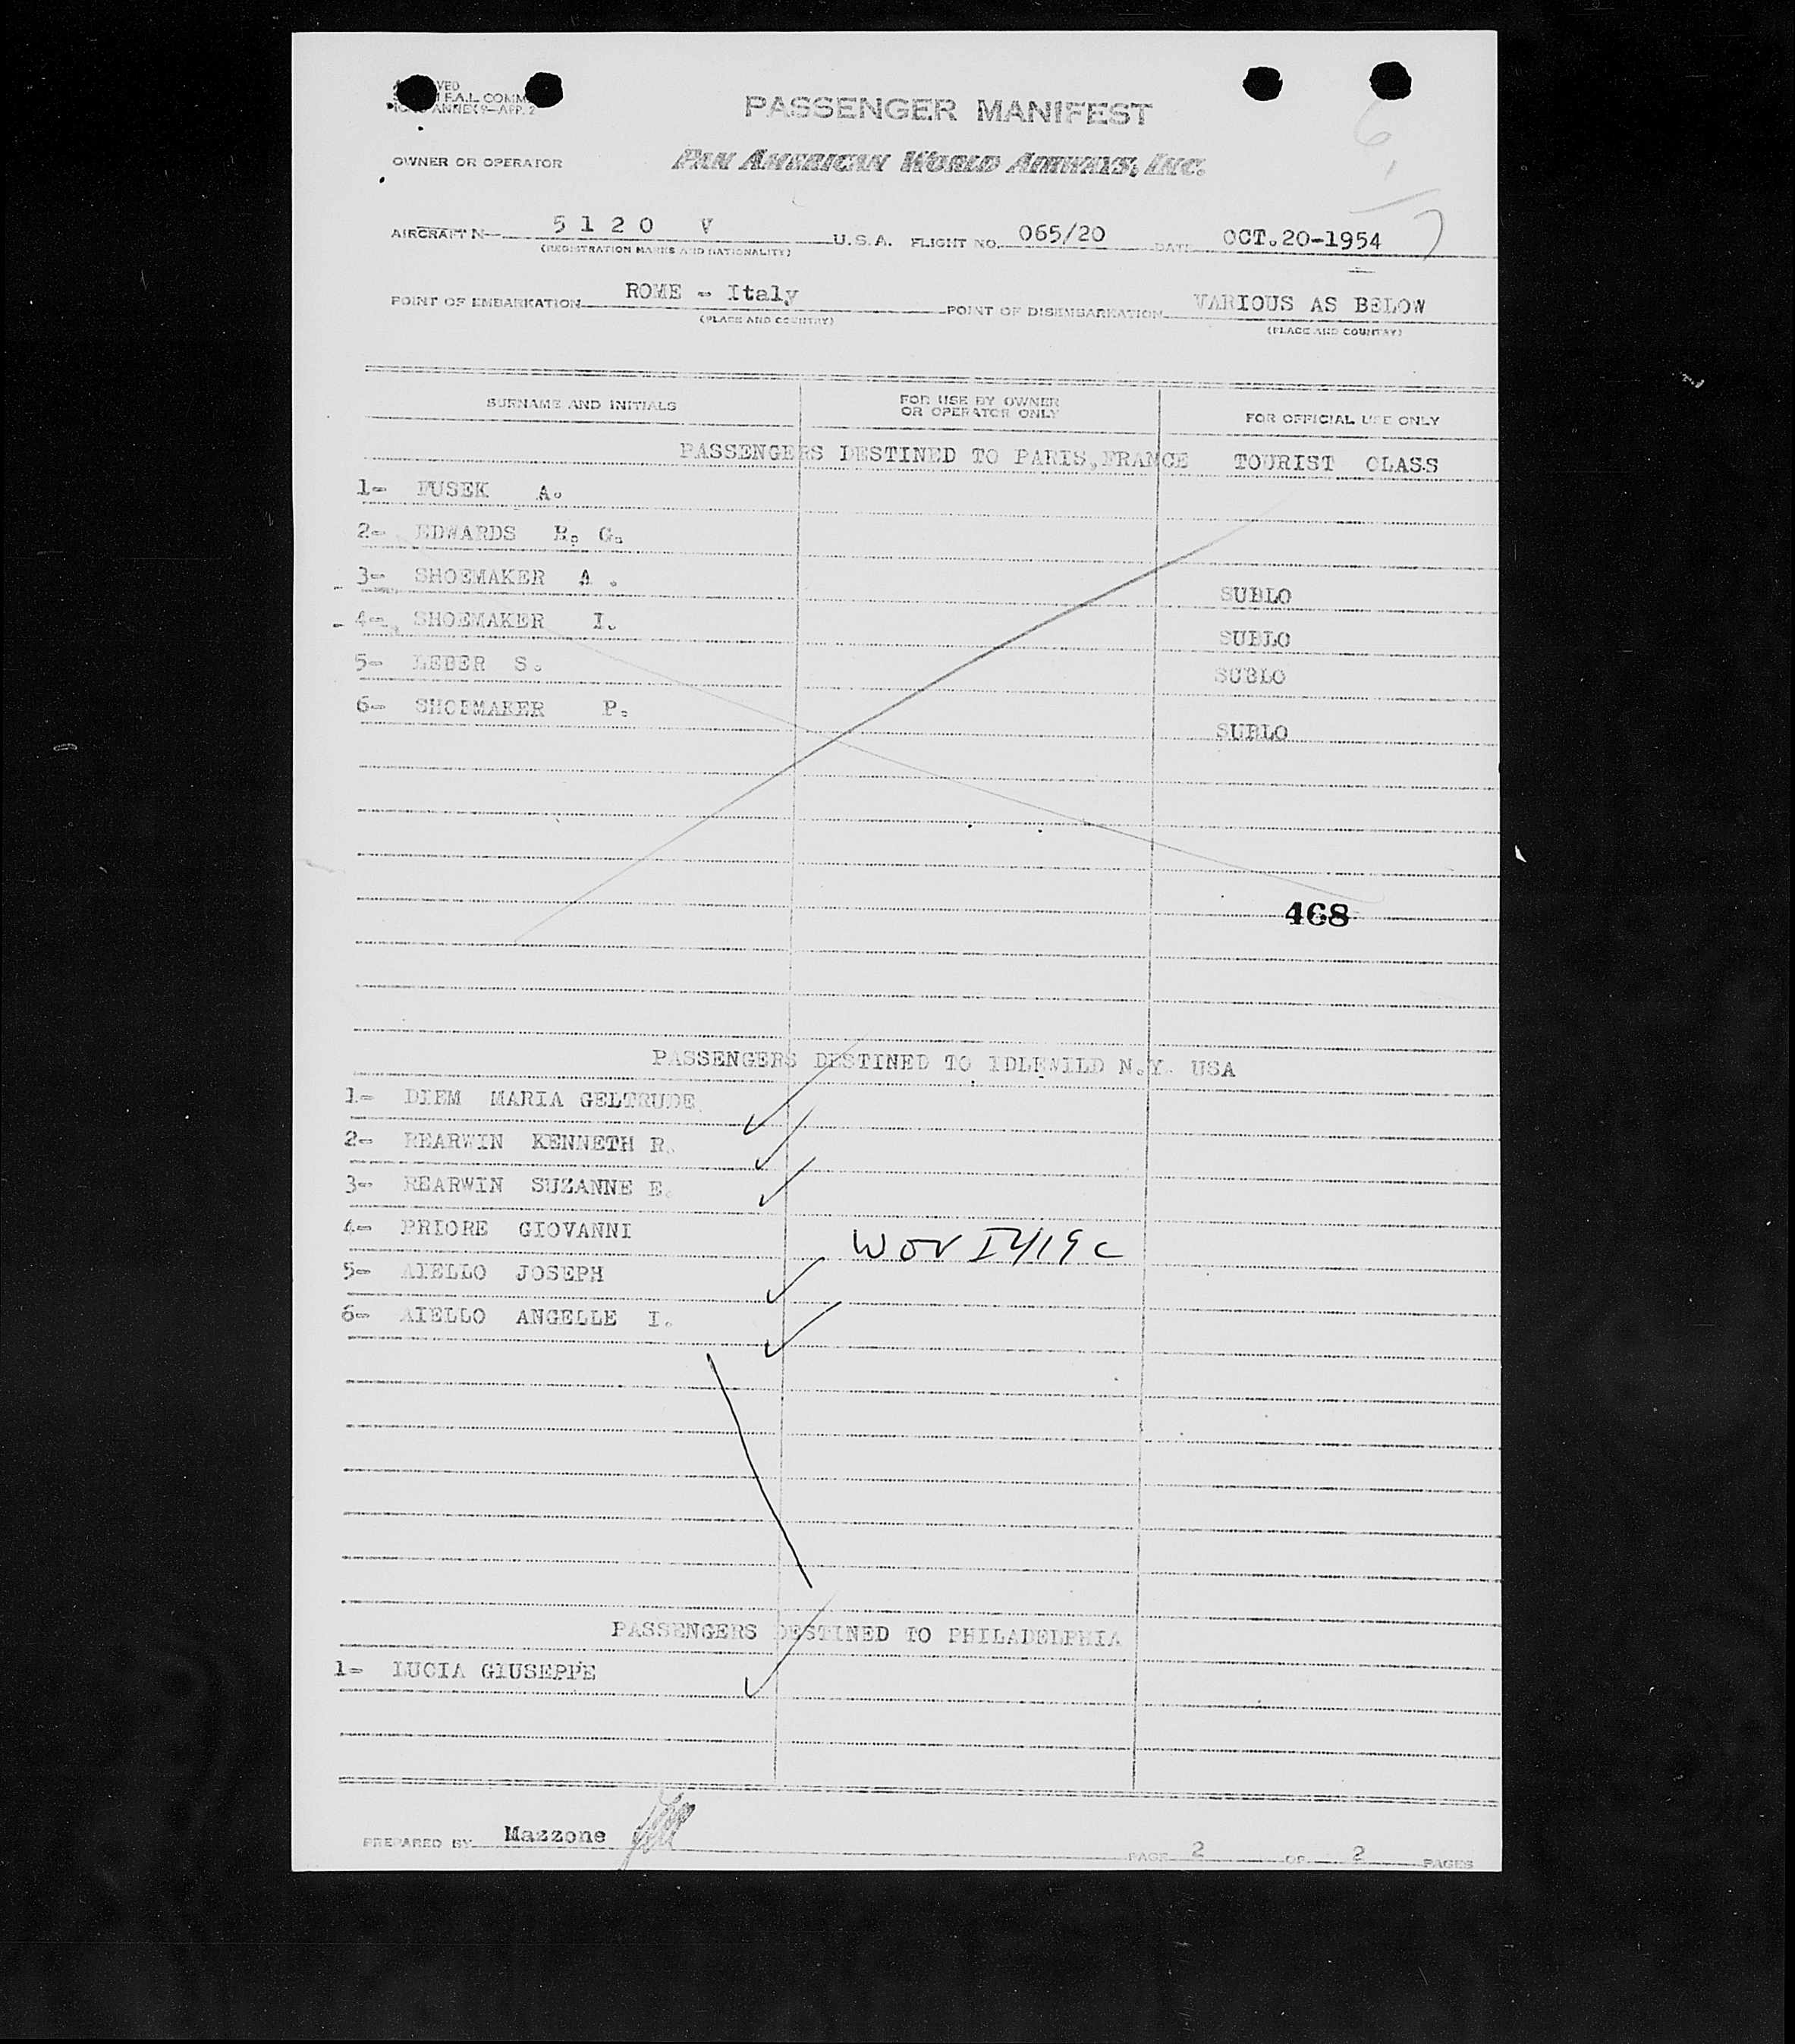 F.A.L. COMM
ANNEX 9-APP. 2
PASSENGER MANIFEST
OWNER OR OPERATOR PAN AMERICAN WORLD AIRWAYS, INC.
AIRCRAFT N 5120 V U.S.A. FLIGHT NO. 065/20 DATE OCT.20-1954
(REGISTRATION MARKS AND NATIONALITY)
POINT OF EMBARKATION ROME - Italy POINT OF DISEMBARKATION VARIOUS AS BELOW
(PLACE AND COUNTRY) (PLACE AND COUNTRY)
SURNAME AND INITIALS FOR USE BY OWNER OR OPERATOR ONLY FOR OFFICIAL USE ONLY
PASSENGERS DESTINED TO PARIS,FRANCE TOURIST CLASS
1- FUSEK A.
2- EDWARDS B. G.
3- SHOEMAKER A. SUBLO
4- SHOEMAKER I. SUBLO
5- LEBER S. SUBLO
6- SHOEMAKER P. SUBLO
468
PASSENGERS DESTINED TO IDLEWILD N.Y. USA
1- DIEM MARIA GELTRUDE
2- REARWIN KENNETH R.
3- REARWIN SUZANNE E.
4- PRIORE GIOVANNI
5- AIELLO JOSEPH
6- AIELLO ANGELLE I.
PASSENGERS DESTINED TO PHILADELPHIA
1- LUCIA GIUSEPPE
PREPARED BY Mazzone PAGE 2 OF 2 PAGES